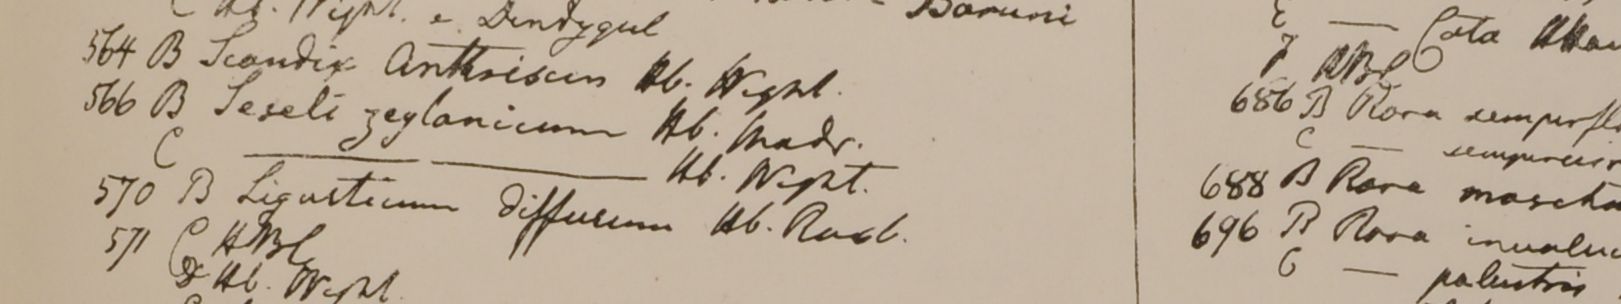 C Hb. Wight. e Dindygul
Baruni
564 B Scandix Anthriscus Hb. Wight.
566 B Seseli zeylanicum Hb. Madr.
C — — Hb. Wight.
570 B Ligusticum diffusum Hb. Roxb.
571 C HBC
D Hb. Wight.
E — Cota
686 B Rosa sempurfl
C — sempervir
688 B Rosa moscha
696 B Rosa involuc
C — palustris